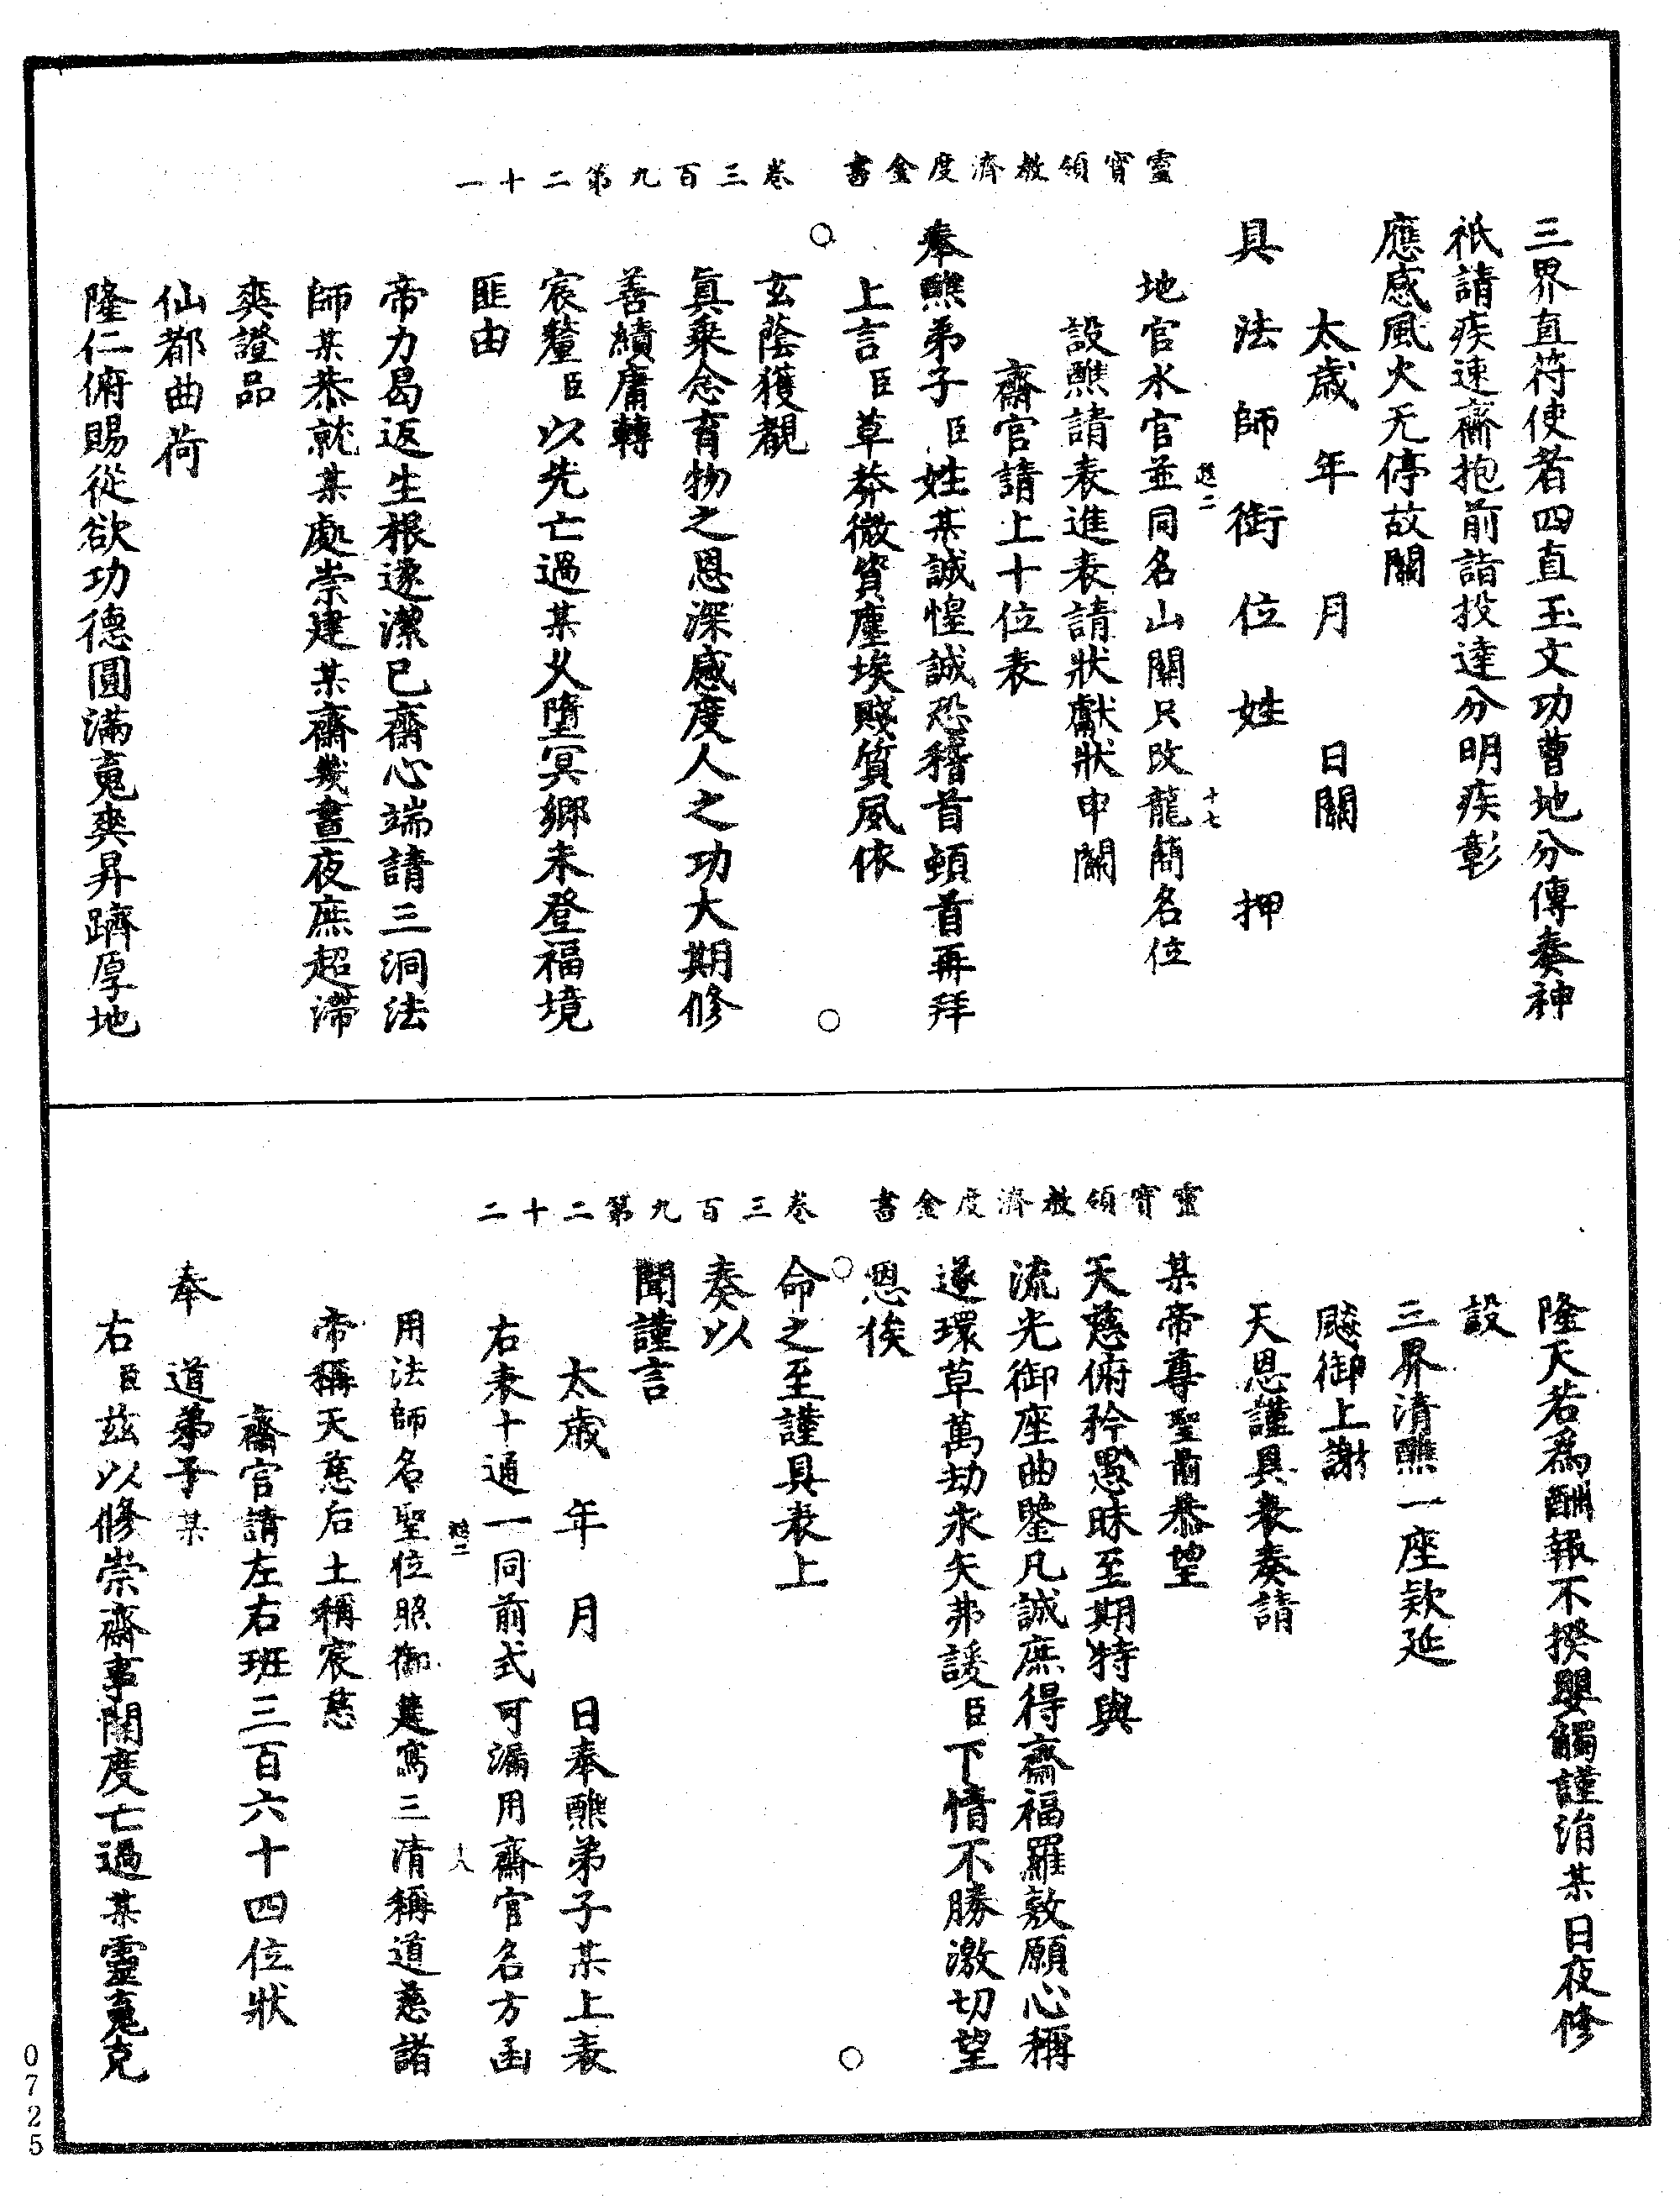 靈寶領教濟度金書　卷三百九第二十一
三界直符使者四直玉文功曹地分傳奏神
祇請疾速齋抱前詣投達分明疾彰
應感風火无停故關
太歲　年　月　日關
具　法　師　銜　位　姓　押
地官水官並同名山關只改龍簡名位
設醮請表進表請狀獻狀申關
齋官請上十位表
奉醮弟子臣姓某誠惶誠恐稽首頓首再拜
上言臣草莽微質塵埃賤質風依
玄蔭獲覩
眞乘念育物之恩深感度人之功大期修
善績庸轉
宸釐臣以先亡過某乂墮冥鄉未登福境
匪由
帝力曷返生根遂潔已齋心端請三洞法
師某恭就某處崇建某齋幾晝夜庶超滯
爽證品
仙都曲荷
隆仁俯賜從欲功德圓滿䰟爽昇躋厚地
靈寶領教濟度金書　卷三百九第二十二
隆天若爲酬報不揆嬰觸謹涓某日夜修
設
三界清醮一座欵延
飈御上謝
天恩謹具表奏請
某帝尊聖前恭望
天慈俯矜愚昧至期特與
流光御座曲鑒凡誠庶得齋福羅敷願心稱
遂環草萬劫永矢弗諼臣下情不勝激切望
恩俟
命之至謹具表上
奏以
聞謹言
太歲　年　月　日奉醮弟子某上表
右表十通一同前式可漏用齋官名方函
用法師名聖位照御筵寫三清稱道慈諸
帝稱天慈后土稱宸慈
齋官請左右班三百六十四位狀
奉　道弟子某
右臣茲以修崇齋事開度亡過某靈䰟克
0725